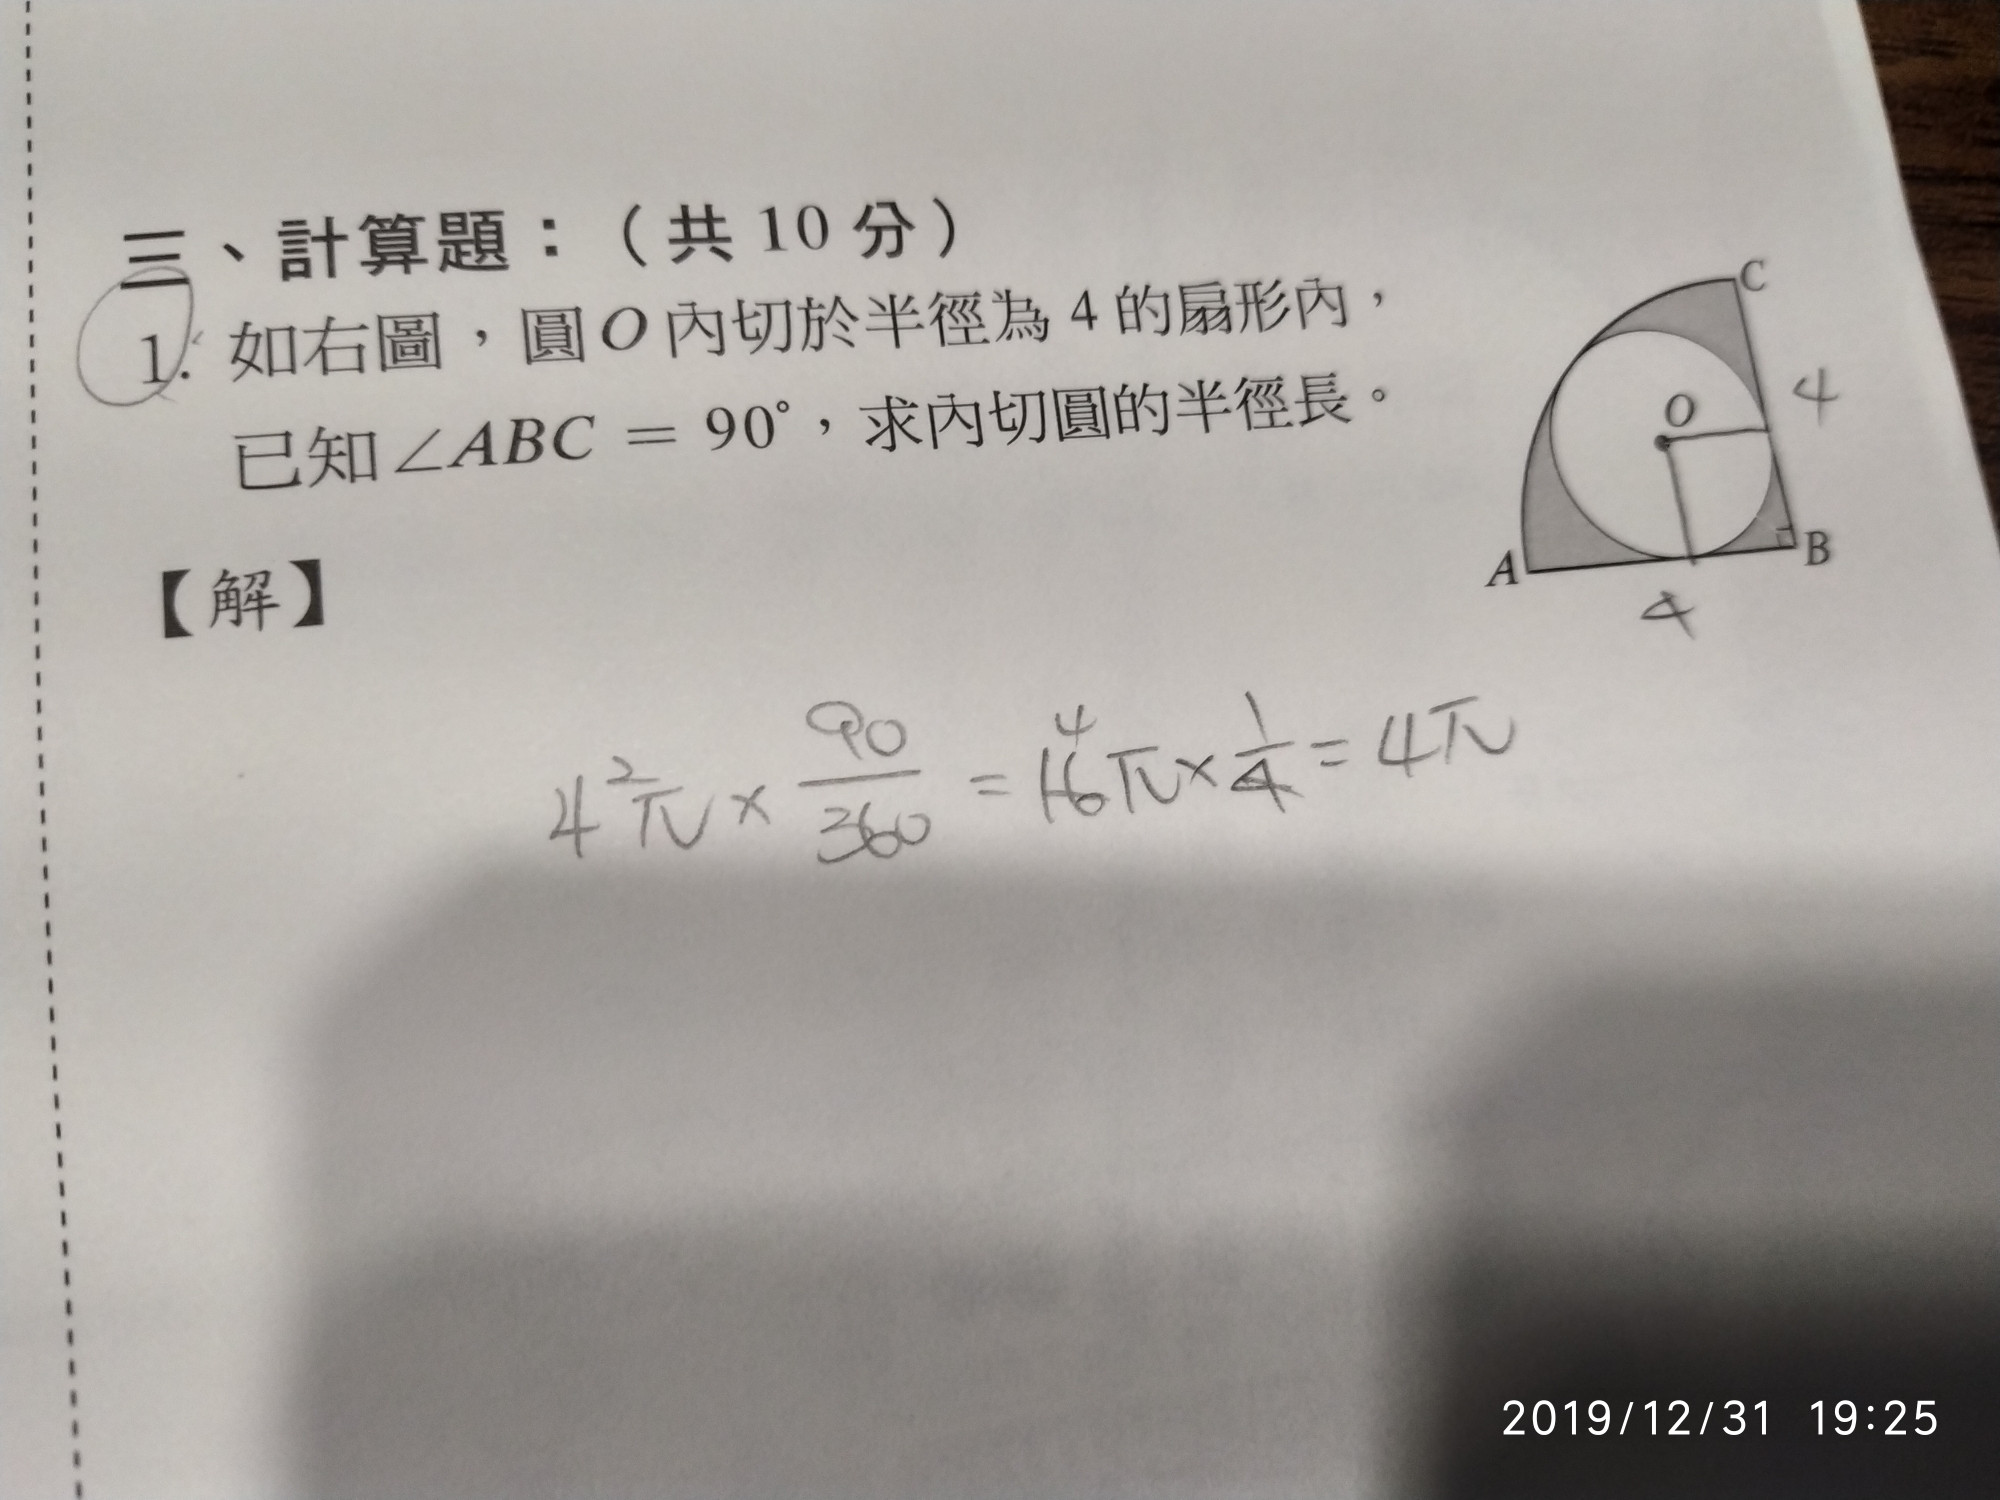 三、計算題：（共 10 分）
1. 如右圖，圓 O 內切於半徑為 4 的扇形內，
已知∠ABC = 90°，求內切圓的半徑長。
C
4
O
A
B
4
【解】
4²π × 90/360 = 16π × 1/4 = 4π
4
2019/12/31 19:25